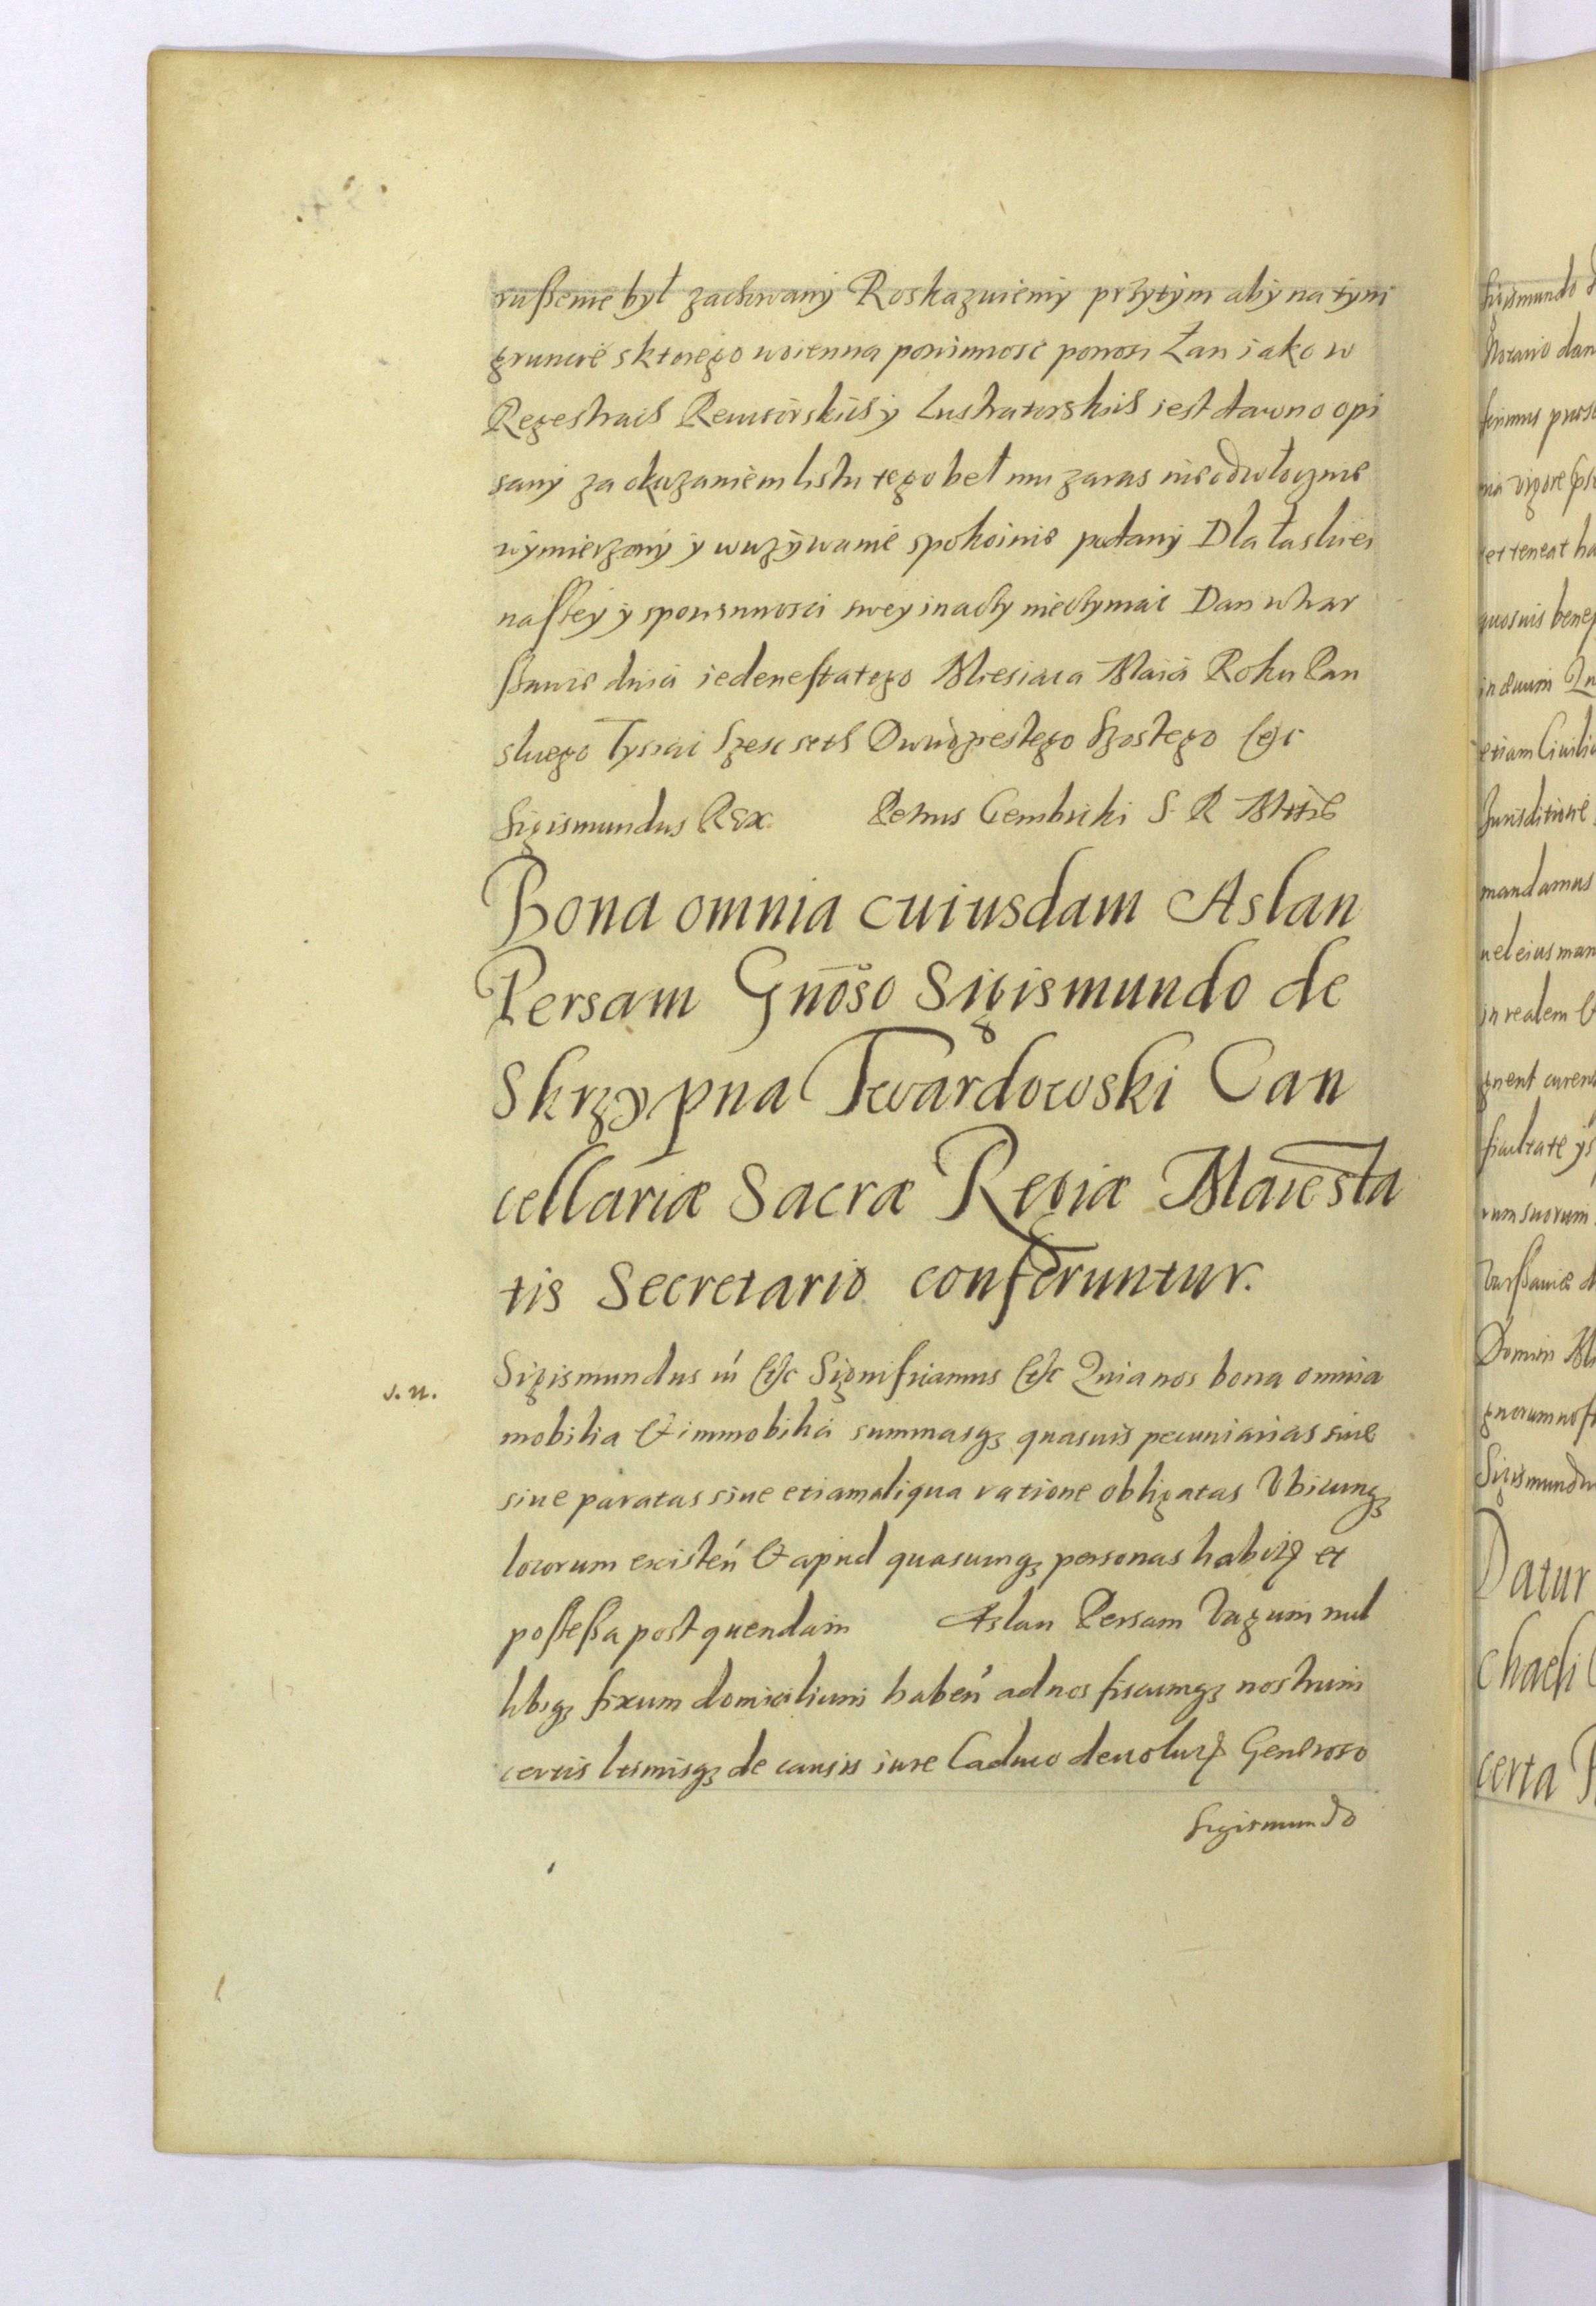 rußenie był zachowany Roskazuiemy przytym aby na tym
gruncie sktorego woienna powinnosc ponosi Łan iako w
Regestrach Rewisorskich y Lustratorskich iest dawno opi
sany za okazaniem listu tego beł mu zaras nieodwłocznie
wymierzony y wuzywanie spokoinie podany Dla łaskiei
naßey y spowinnosci swey inaczy nieczyniac Dan whar
ßawie dnia iedenestatego Miesiaca Maia Roku Pan
skiego Tysiac Szesc seth Dwudziestego Szostego &c
Sigismundus Rex Petrus Gembicki S R Mttis
Bona omnia cuiusdam Aslan
Persam Gnoso Sigismundo de
Skrzypna Twardowski Can
cellariæ Sacræ Regiæ Maiesta
tis Secretario conferuntur.
J. n.
Sigismundus iii &c Significamus &c Quia nos bona omnia
mobilia & immobilia summasqꝫ quasuis pecuniarias siue
siue paratas siue etiam aliqua ratione obligatas Vbicunqꝫ
locorum existen & apud quascumqꝫ personas habita et
poßeßa post quendam Aslan Persam Vagum nul
libiqꝫ fixum domicilium haben ad nos fiscumqꝫ nostrum
certis ltimisqꝫ de causis iure Caduco deuoluta Generoso
Sigismundo
Sigismundo
Notario dan
mandamus
in realem &
Sigismundu
Datur
chaeli
certa